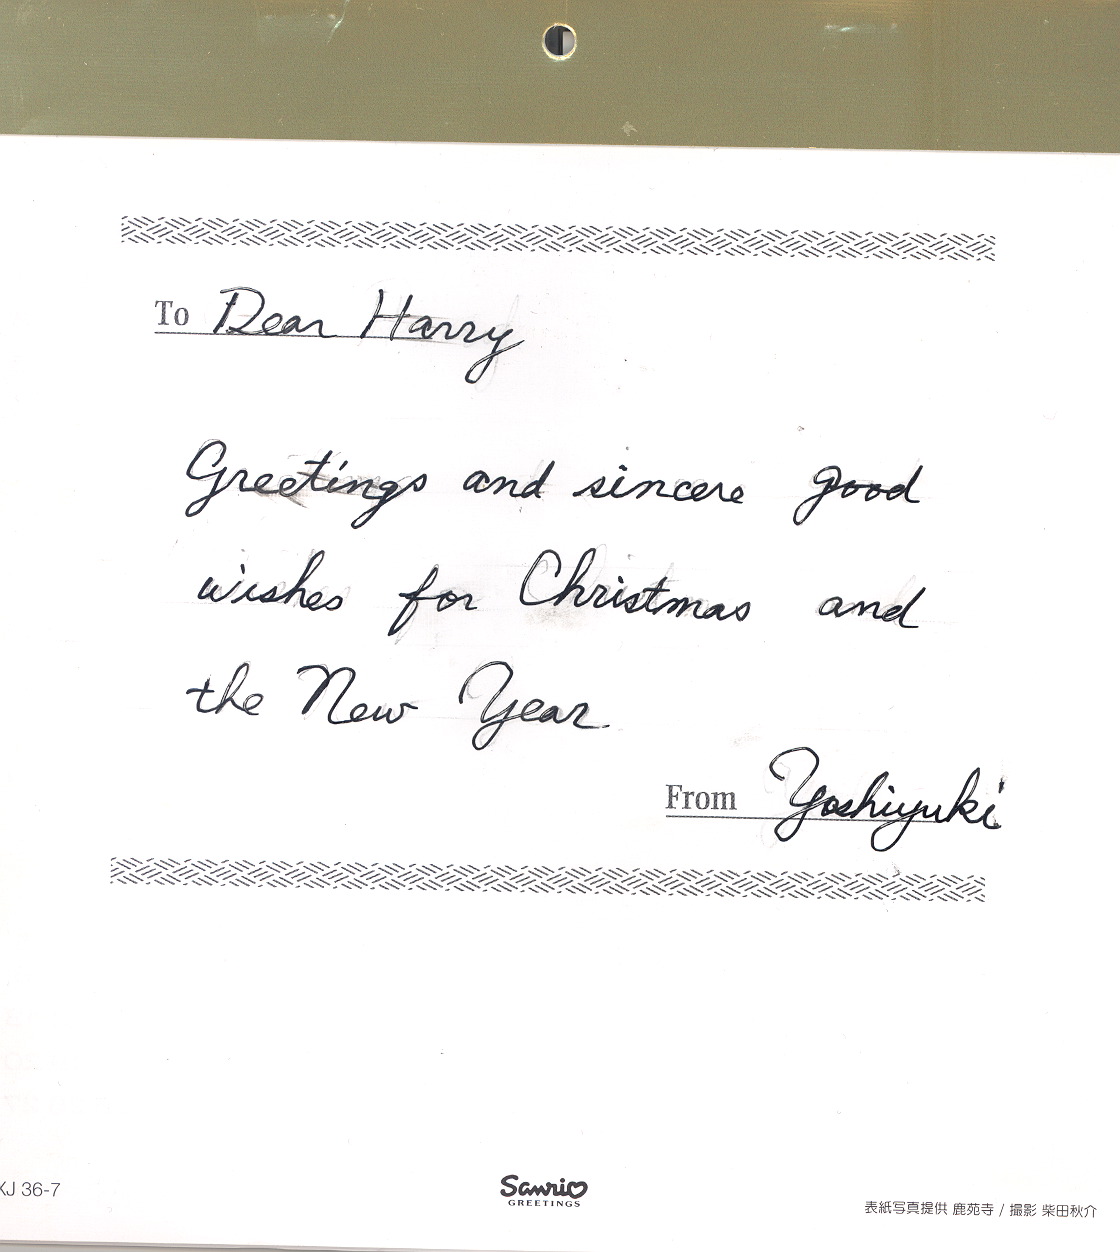 To Dear Harry
Greetings and sincere good
wishes for Christmas and
the New Year
From Yoshiyuki
XJ 36-7
Sanrio
GREETINGS
表紙写真提供 鹿苑寺 / 撮影 柴田秋介